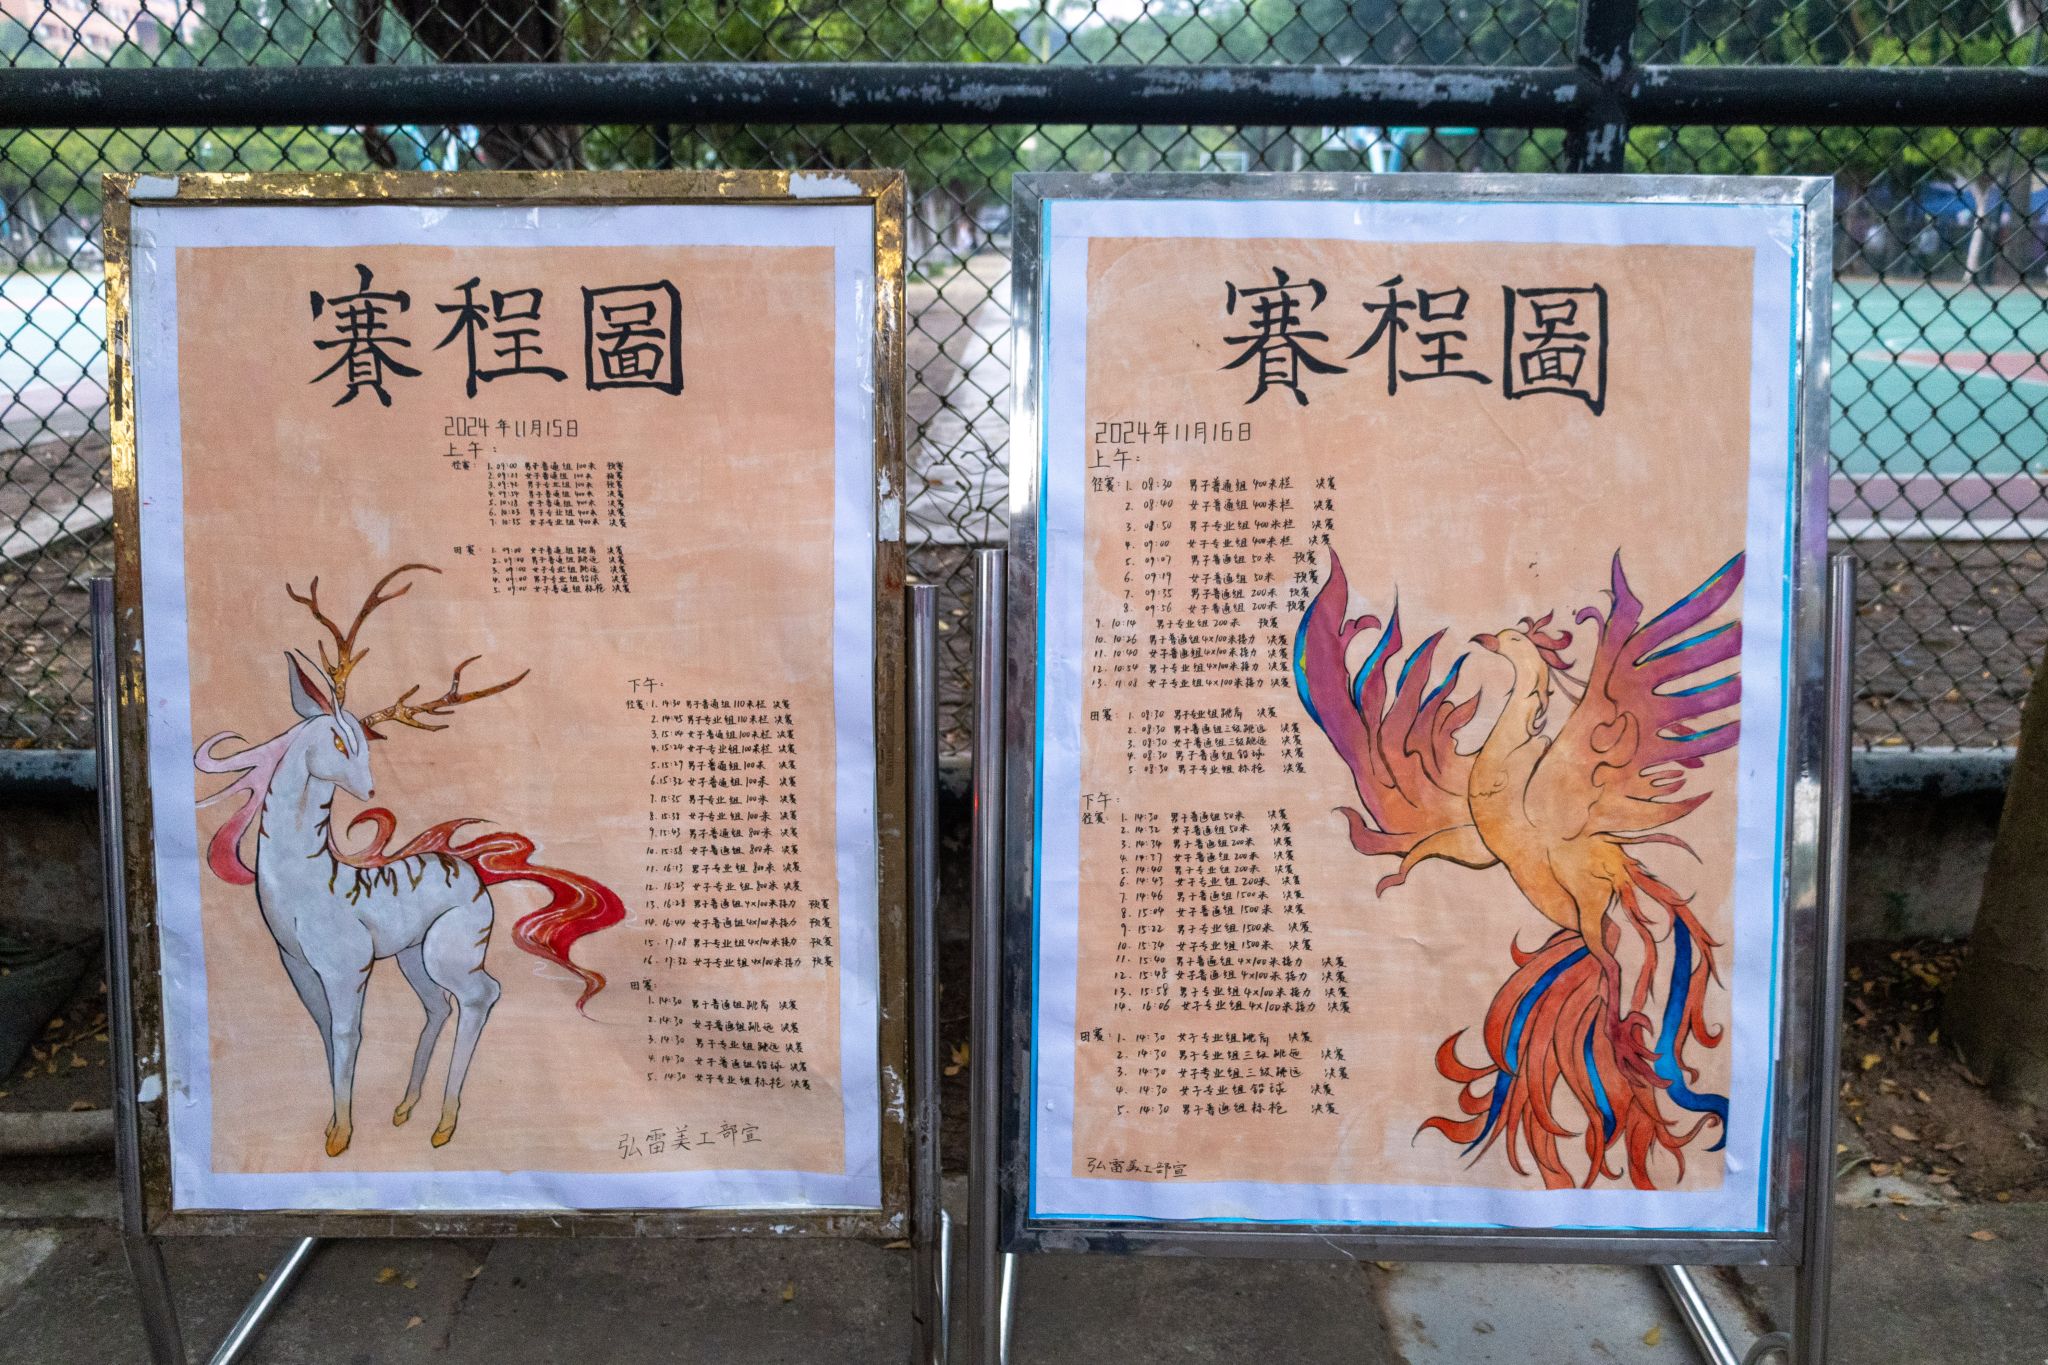 賽程圖
2024年11月15日
上午:
径赛: 1. 09:00 男子普通组 100米 预赛
2. 09:21 女子普通组 100米 预赛
3. 09:42 男子专业组 100米 预赛
4. 09:54 男子普通组 400米 决赛
5. 10:18 女子普通组 400米 决赛
6. 10:23 男子专业组 400米 决赛
7. 10:35 女子专业组 400米 决赛
田赛: 1. 09:00 女子普通组 跳高 决赛
2. 09:00 男子普通组 跳远 决赛
3. 09:00 女子专业组 跳远 决赛
4. 09:00 男子专业组 铅球 决赛
5. 09:00 女子普通组 标枪 决赛
下午:
径赛: 1. 14:30 男子普通组 110米栏 决赛
2. 14:45 男子专业组 110米栏 决赛
3. 15:04 女子普通组 100米栏 决赛
4. 15:24 女子专业组 100米栏 决赛
5. 15:29 男子普通组 100米 决赛
6. 15:32 女子普通组 100米 决赛
7. 15:35 男子专业组 100米 决赛
8. 15:38 女子专业组 100米 决赛
9. 15:43 男子普通组 800米 决赛
10. 15:58 女子普通组 800米 决赛
11. 16:13 男子专业组 800米 决赛
12. 16:23 女子专业组 800米 决赛
13. 16:28 男子普通组 4x100米接力 预赛
14. 16:44 女子普通组 4x100米接力 预赛
15. 17:08 男子专业组 4x100米接力 预赛
16. 17:32 女子专业组 4x100米接力 预赛
田赛:
1. 14:30 男子普通组 跳高 决赛
2. 14:30 女子普通组 跳远 决赛
3. 14:30 男子专业组 跳远 决赛
4. 14:30 女子普通组 铅球 决赛
5. 14:30 女子专业组 标枪 决赛
弘雷美工部宣
賽程圖
2024年11月16日
上午:
径赛: 1. 08:30 男子普通组 400米栏 决赛
2. 08:40 女子普通组 400米栏 决赛
3. 08:50 男子专业组 400米栏 决赛
4. 09:00 女子专业组 400米栏 决赛
5. 09:07 男子普通组 50米 预赛
6. 09:19 女子普通组 50米 预赛
7. 09:35 男子普通组 200米 预赛
8. 09:56 女子普通组 200米 预赛
9. 10:14 男子专业组 200米 预赛
10. 10:26 男子普通组 4x100米接力 决赛
11. 10:40 女子普通组 4x100米接力 决赛
12. 10:54 男子专业组 4x100米接力 决赛
13. 11:08 女子专业组 4x100米接力 决赛
田赛: 1. 08:30 男子专业组 跳高 决赛
2. 08:30 男子普通组 三级跳远 决赛
3. 08:30 女子普通组 三级跳远 决赛
4. 08:30 男子普通组 铅球 决赛
5. 08:30 男子专业组 标枪 决赛
下午:
径赛: 1. 14:30 男子普通组 50米 决赛
2. 14:32 女子普通组 50米 决赛
3. 14:34 男子普通组 200米 决赛
4. 14:37 女子普通组 200米 决赛
5. 14:40 男子专业组 200米 决赛
6. 14:43 女子专业组 200米 决赛
7. 14:46 男子普通组 1500米 决赛
8. 15:04 女子普通组 1500米 决赛
9. 15:22 男子专业组 1500米 决赛
10. 15:34 女子专业组 1500米 决赛
11. 15:40 男子普通组 4x100米接力 决赛
12. 15:48 女子普通组 4x100米接力 决赛
13. 15:58 男子专业组 4x100米接力 决赛
14. 16:06 女子专业组 4x100米接力 决赛
田赛: 1. 14:30 女子专业组 跳高 决赛
2. 14:30 男子专业组 三级跳远 决赛
3. 14:30 女子专业组 三级跳远 决赛
4. 14:30 女子专业组 铅球 决赛
5. 14:30 男子普通组 标枪 决赛
弘雷美工部宣